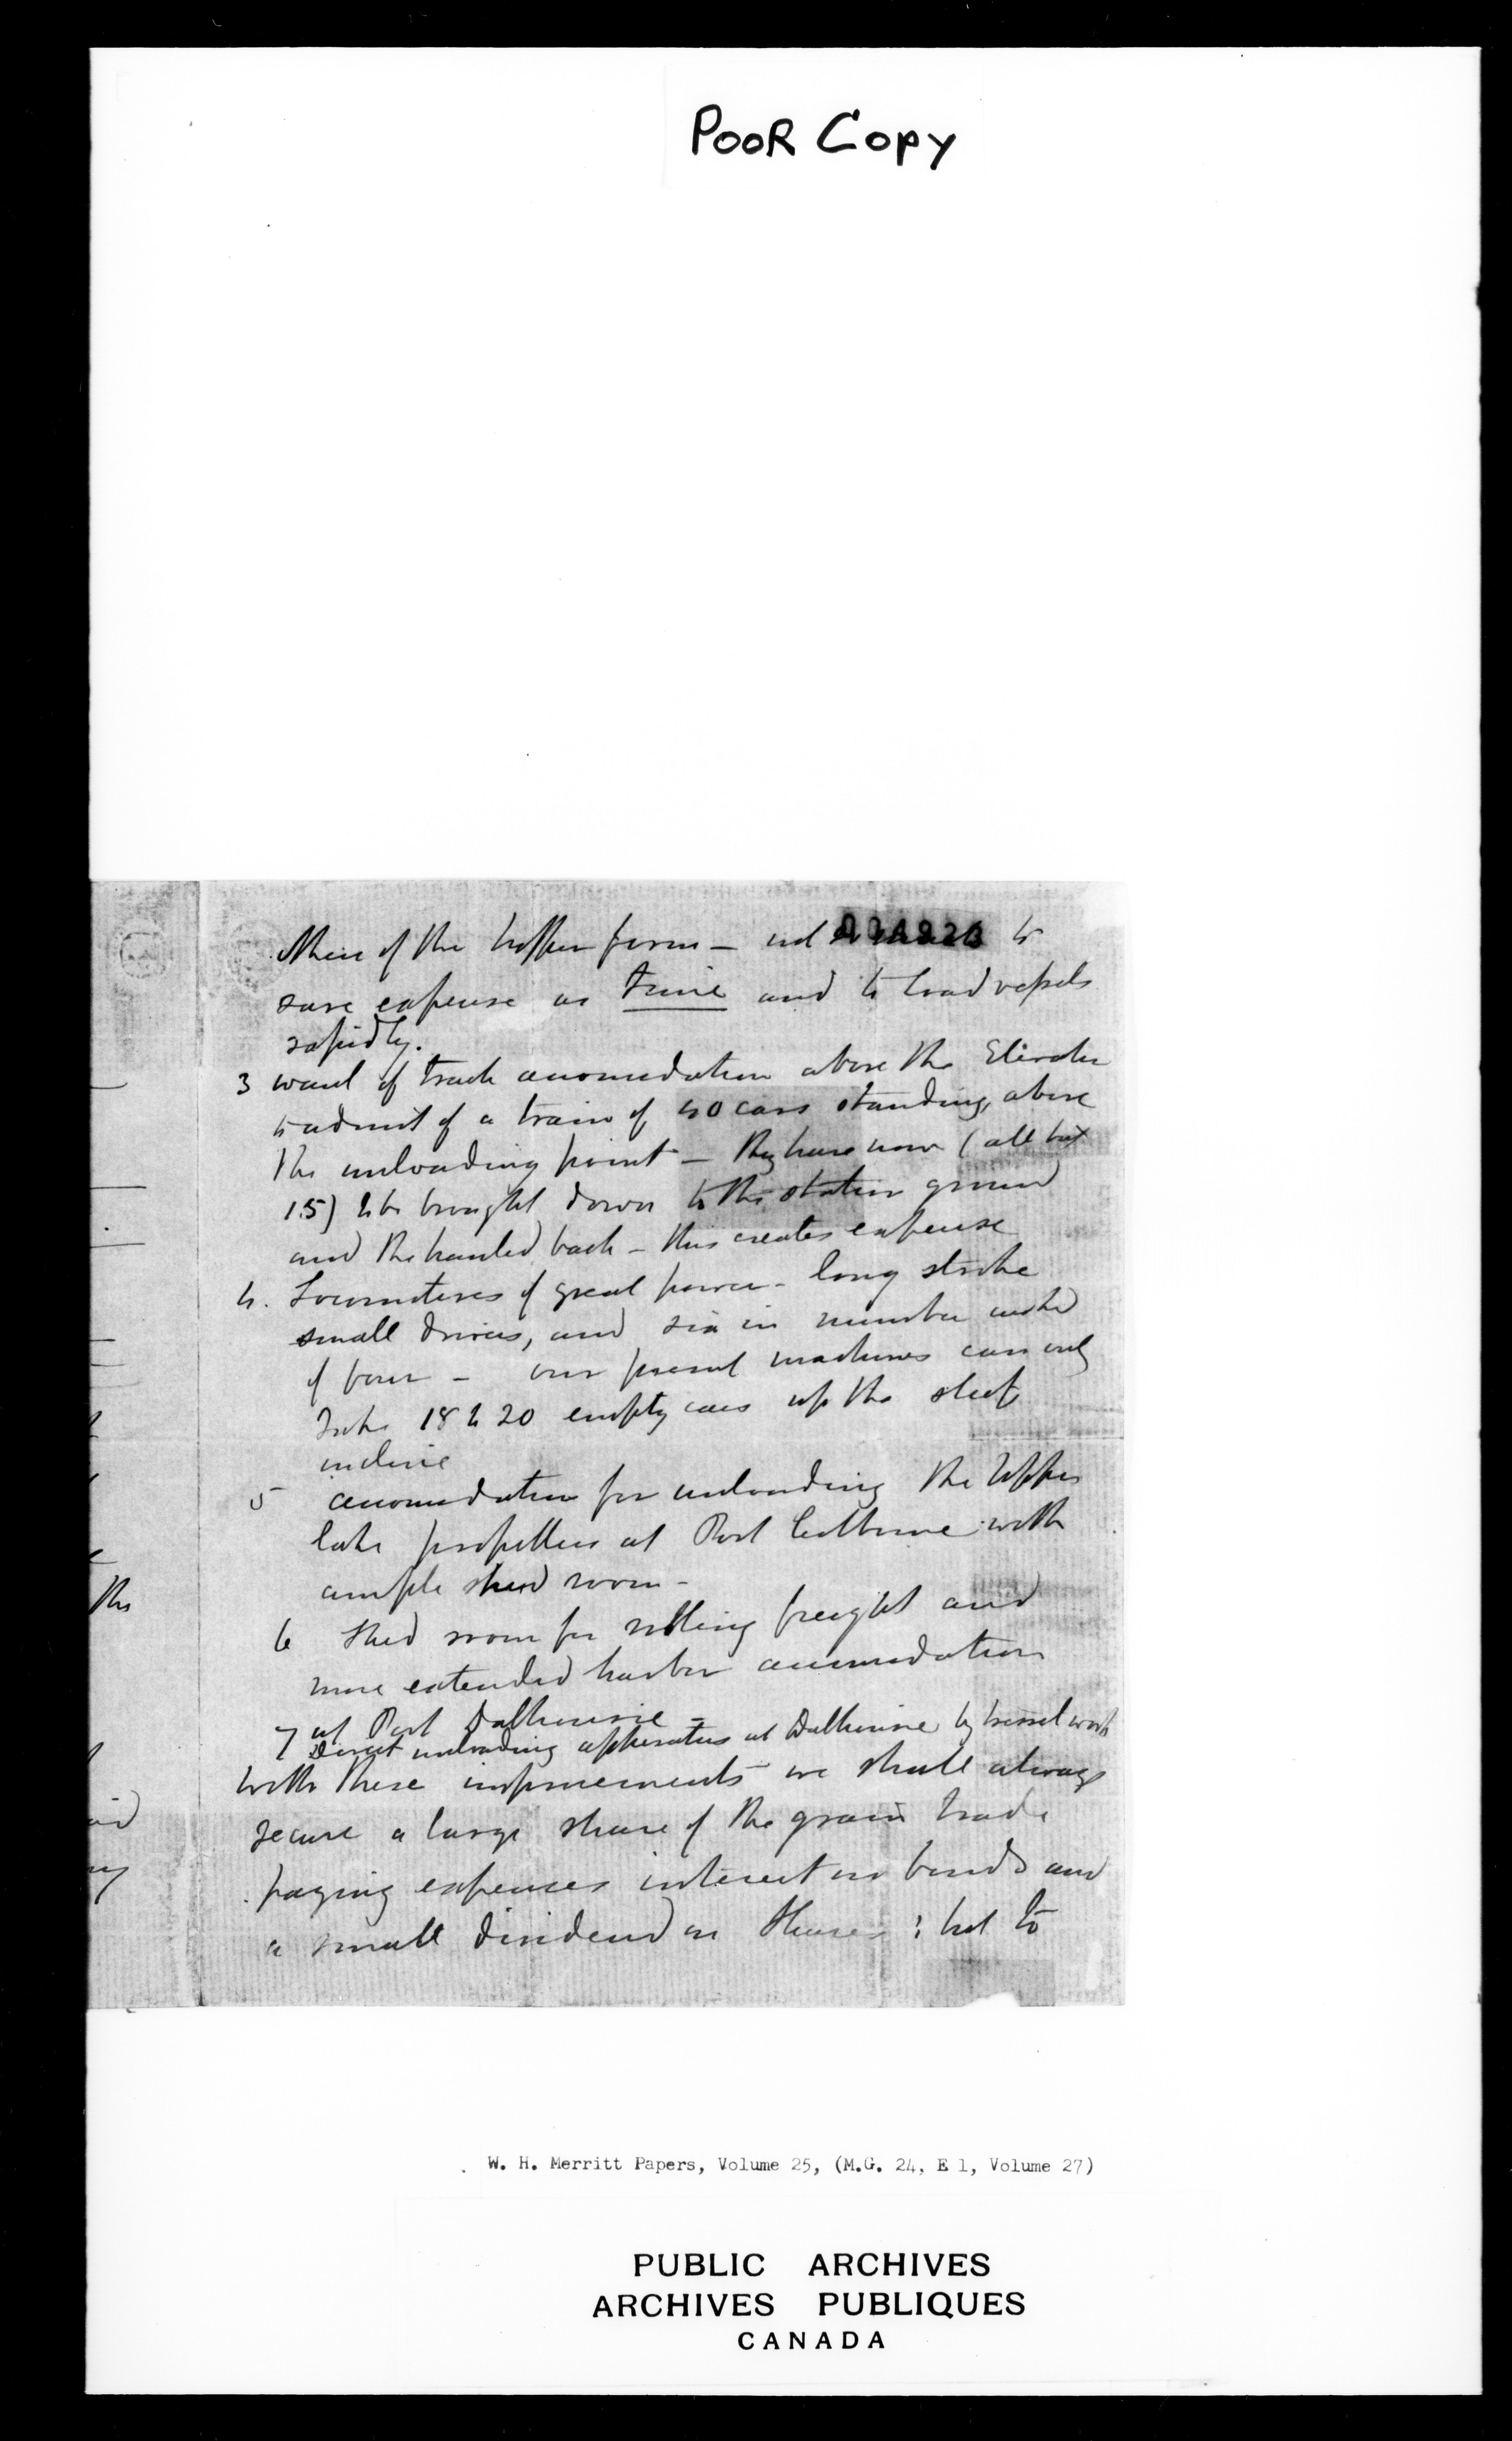 POOR COPY
of the hopper form — not so much to
save expense as time and to load vessels
rapidly.
3 want of track accomodation above the Elevator
to admit of a train of 40 cars standing, above
the unloading point — they have now (all but
15) to be brought down to the station ground
and then hauled back — this creates expense
4. Locomotives of great power — long stroke
small drivers, and six in number instead
of four — our present machines can only
take 18 to 20 empty cars up the steep
incline
5 accomodation for unloading the Upper
lake propellers at Port Colborne with
ample shed room —
6 Shed room for rolling freight and
more extended harbor accomodation
at Port Dalhousie —
7 Direct unloading apparatus at Dalhousie by
with these improvements we shall always
secure a large share of the grain trade
paying expenses interest on bonds and
a small dividend on shares; but to
the
W. H. Merritt Papers, Volume 25, (M.G. 24, E 1, Volume 27)
PUBLIC ARCHIVES
ARCHIVES PUBLIQUES
CANADA